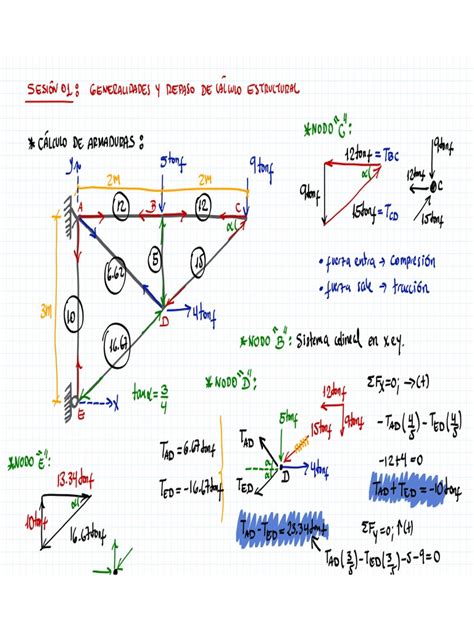 SESIÓN 01: GENERALIDADES Y REPASO DE CÁLCULO ESTRUCTURAL
* CÁLCULO DE ARMADURAS:
y
5tonf
9tonf
2m
2m
A
B
C
12
12
α
3m
6.67
5
15
10
16.67
D
4tonf
E
x
tanα = 3/4
* NODO "C":
12tonf = TBC
9tonf
α
15tonf = TCD
9tonf
12tonf
C
15tonf
• fuerza entra → compresión
• fuerza sale → tracción
* NODO "B": Sistema colineal en x e y.
* NODO "D":
5tonf
12tonf
15tonf
9tonf
TAD
α
α
D
4tonf
TED
ΣFx=0; →(+)
-TAD(4/5)-TED(4/5)
-12+4=0
TAD+TED=-10tonf
ΣFy=0; ↑(+)
TAD(3/5)-TED(3/5)-5-9=0
TAD-TED=23.34tonf
TAD=6.67tonf
TED=-16.67tonf
* NODO "E":
13.34tonf
10tonf
α
16.67tonf